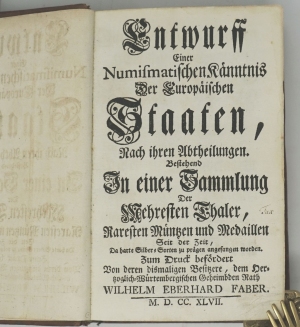 Entwurff
Einer
Numismatischen Känntnis
Der Europäischen
Staaten,
Nach ihren Abtheilungen.
Bestehend
In einer Sammlung
Der
Mehresten Thaler,
Raresten Müntzen und Medaillen
Seit der Zeit,
Da harte Silber-Sorten zu prägen angefangen worden.
Zum Druck befördert
Von deren dismaligen Besitzere, dem Her-
tzoglich-Würtembergischen Geheimbden Rath
WILHELM EBERHARD FABER.
M. D. CC. XLVII.